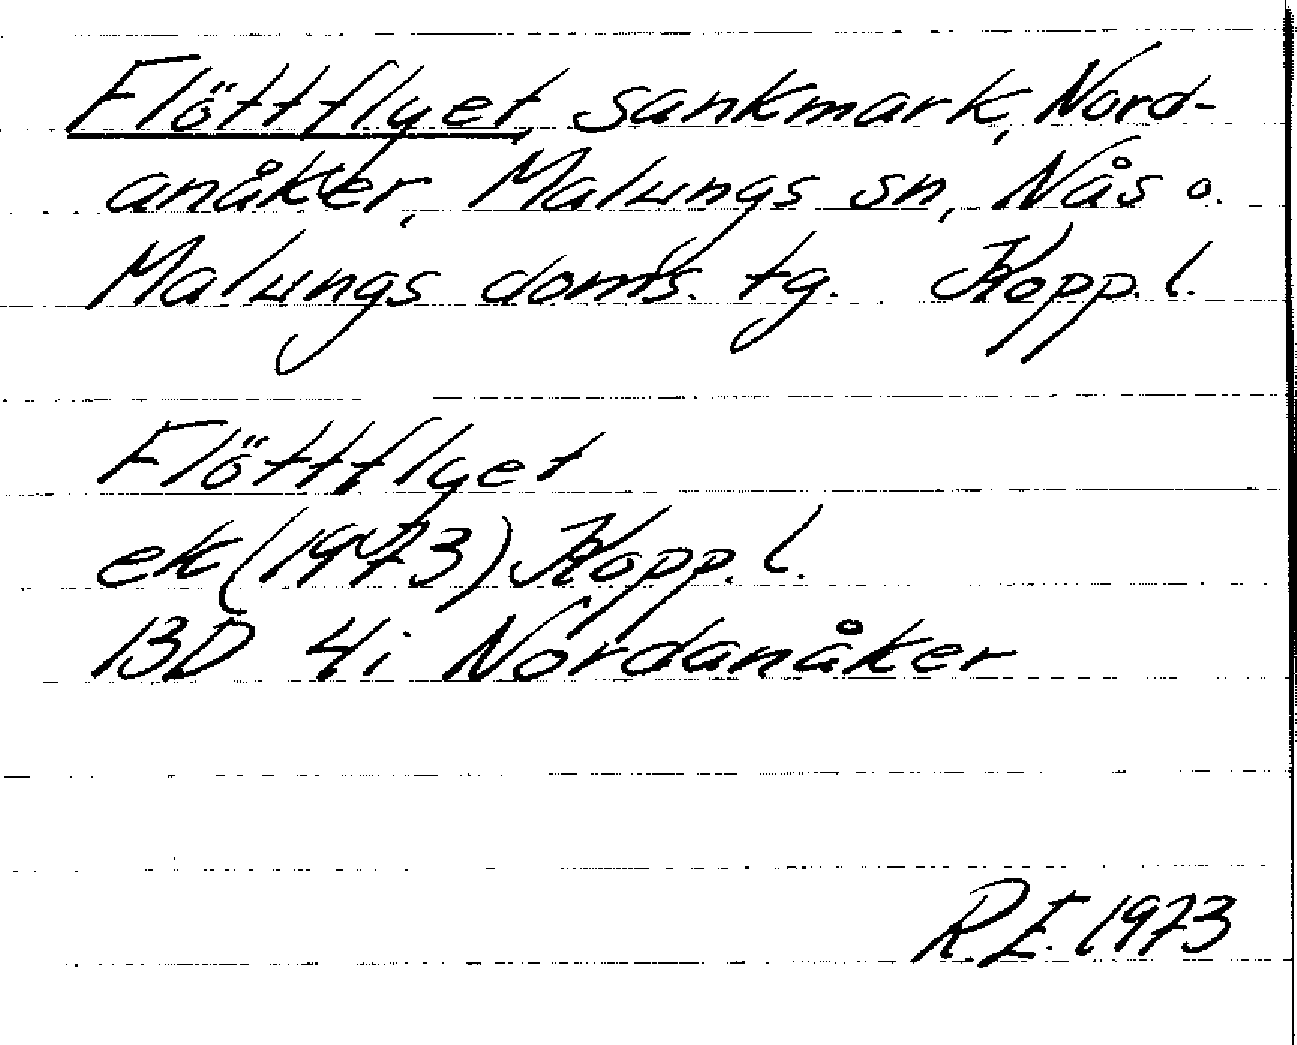 Flöttflyet, sankmark, Nord-
anåker, Malungs sn, Nås o.
Malungs doms. tg. Kopp. l.
Flöttflyet
ek (1973) Kopp. l.
13D 4i Nordanåker
R.E. 1973